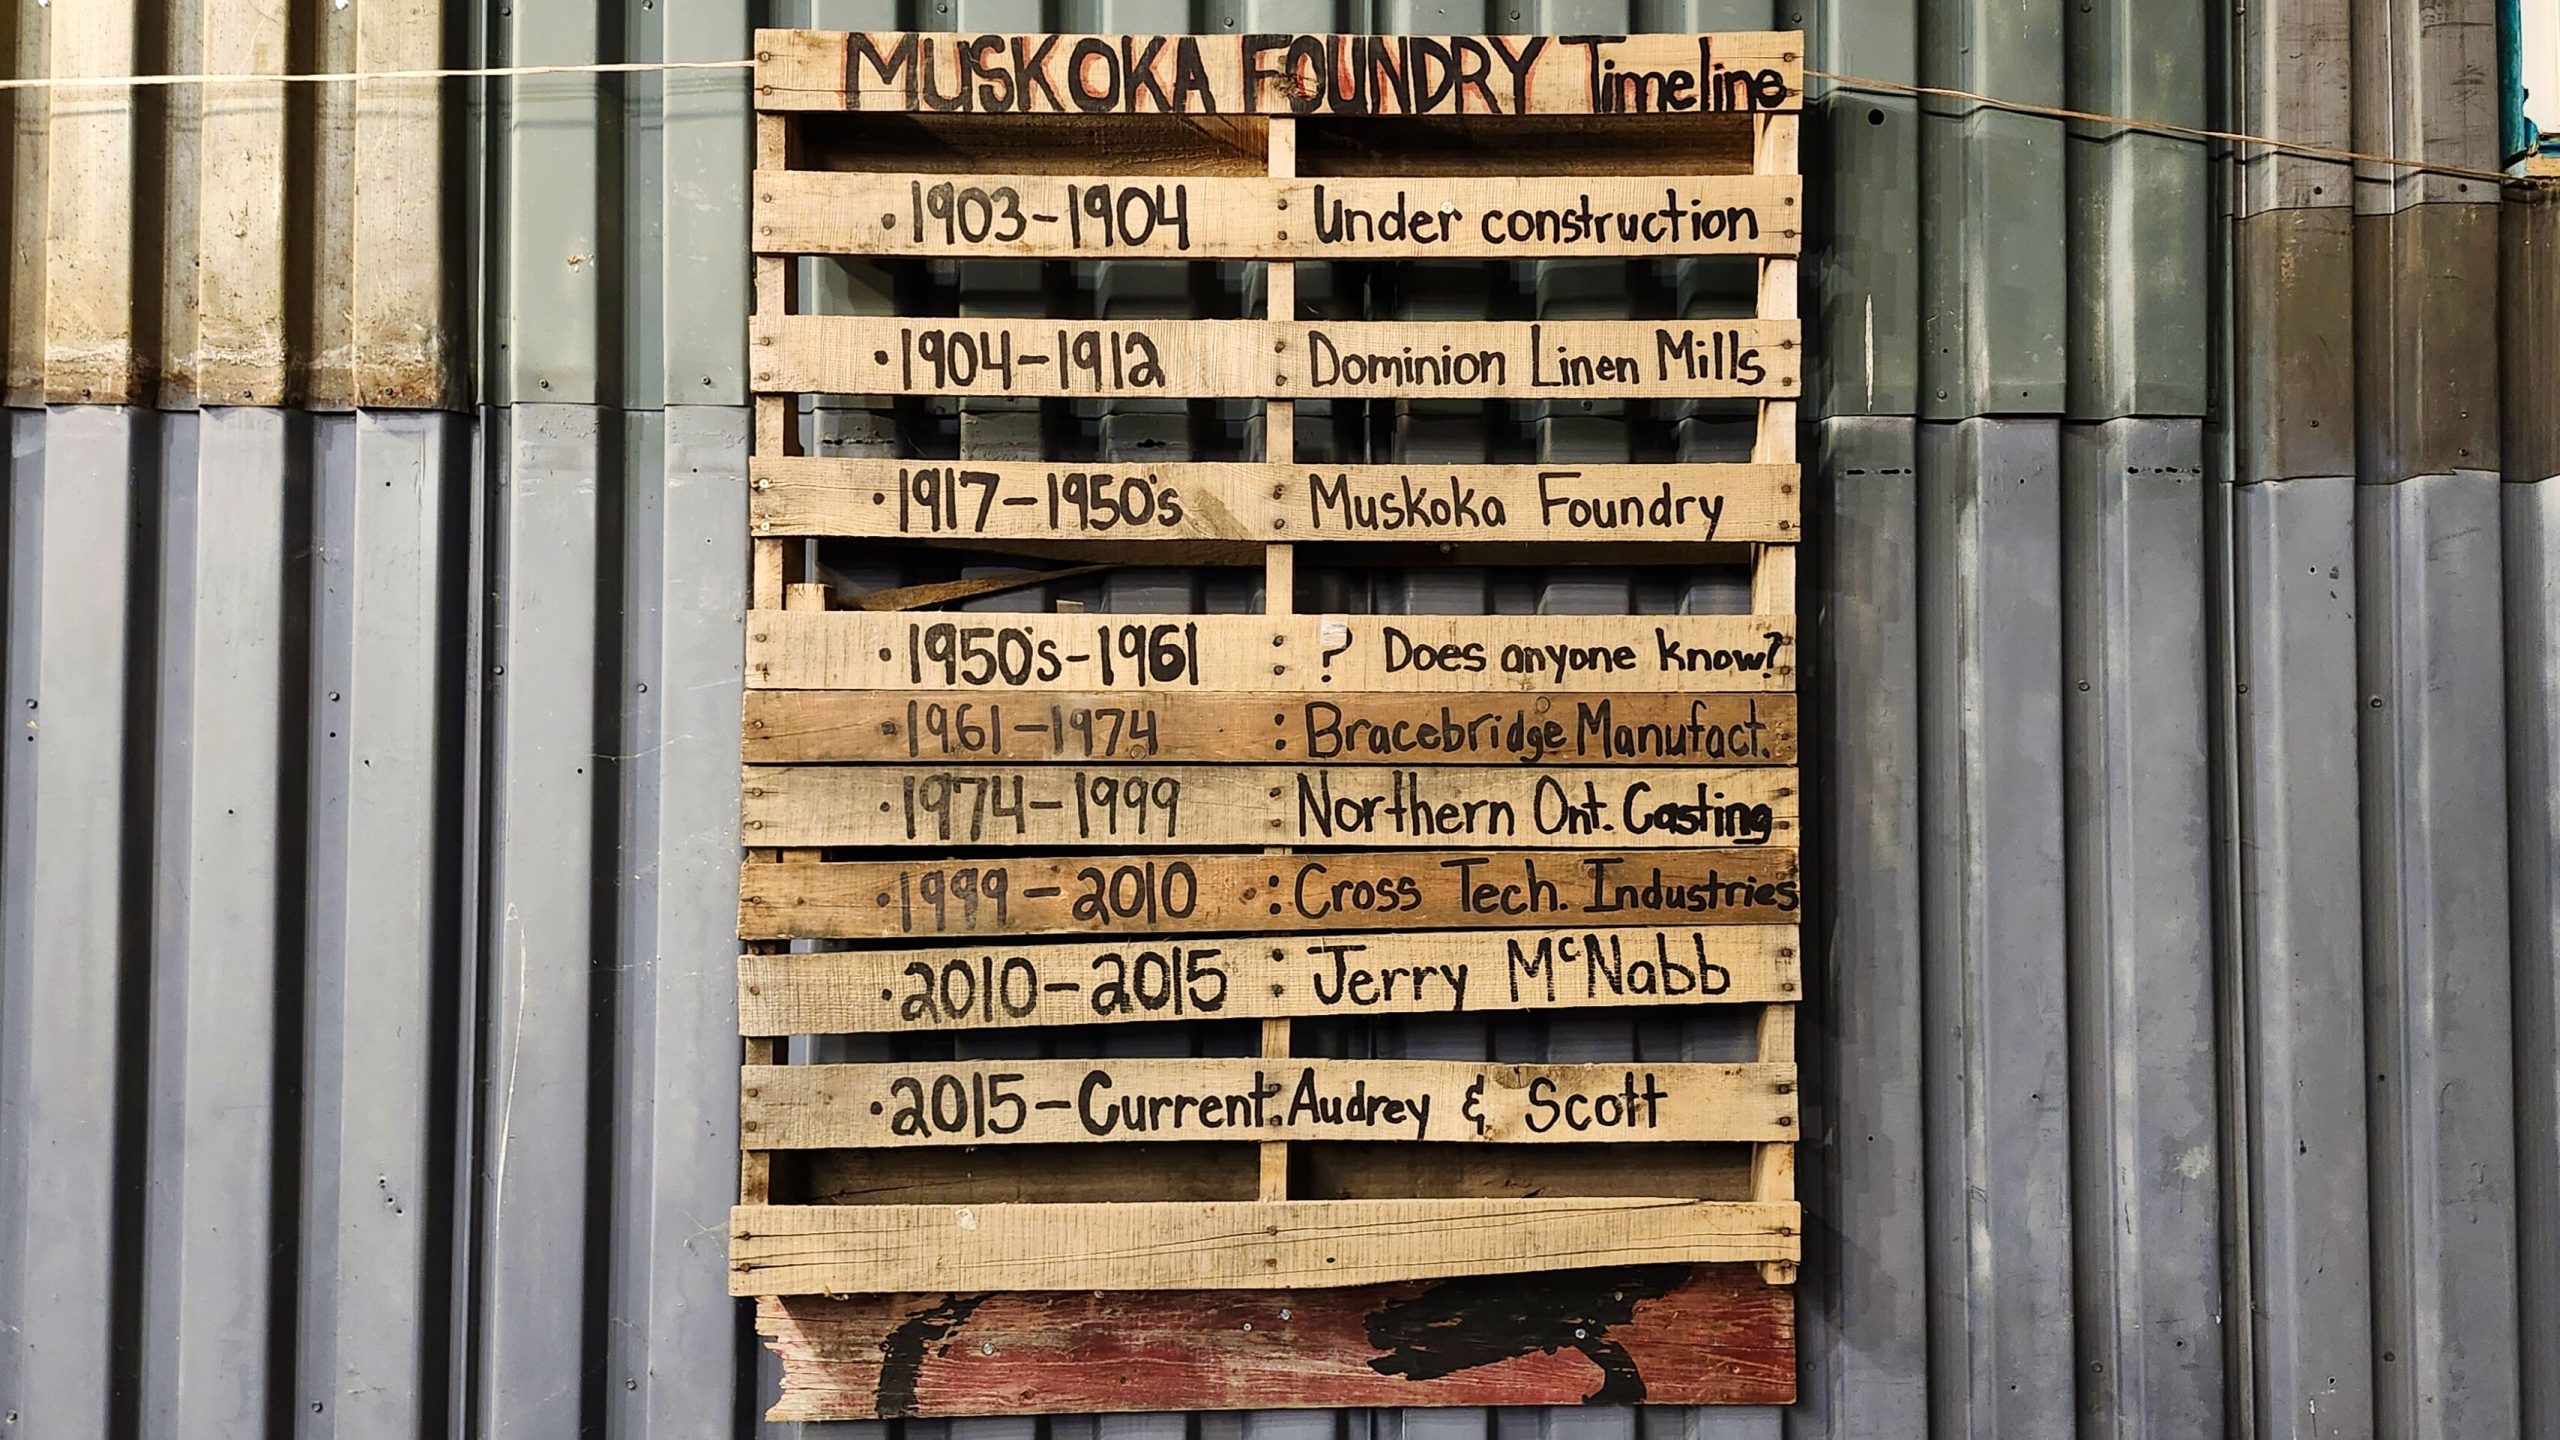 MUSKOKA FOUNDRY Timeline
•1903-1904 : Under construction
•1904-1912 : Dominion Linen Mills
•1917-1950's : Muskoka Foundry
•1950's-1961 : ? Does anyone know?
•1961-1974 : Bracebridge Manufact.
•1974-1999 : Northern Ont. Casting
•1999-2010 : Cross Tech. Industries
•2010-2015 : Jerry McNabb
•2015-Current: Audrey & Scott